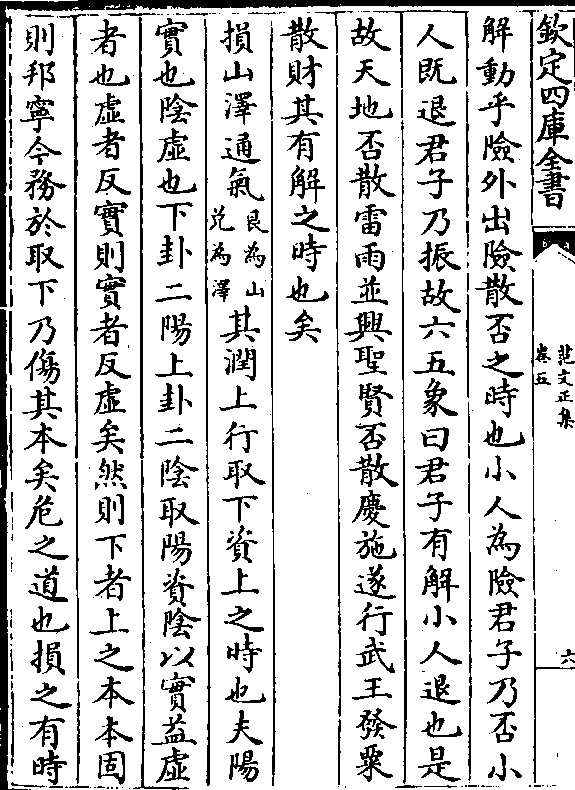 欽定四庫全書
范文正集
卷五
六
解動乎險外出險散否之時也小人為險君子乃否小
人既退君子乃振故六五象曰君子有解小人退也是
故天地否散雷雨並興聖賢否散慶施遂行武王發粟
散財其有解之時也矣
損山澤通氣艮為山兌為澤其潤上行取下資上之時也夫陽
實也陰虛也下卦二陽上卦二陰取陽資陰以實益虛
者也虛者反實則實者反虛矣然則下者上之本本固
則邦寧今務於取下乃傷其本矣危之道也損之有時